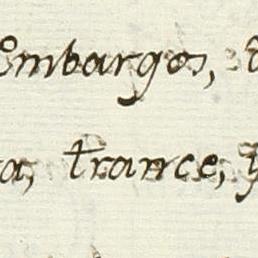 ombargos,
a, trance, y